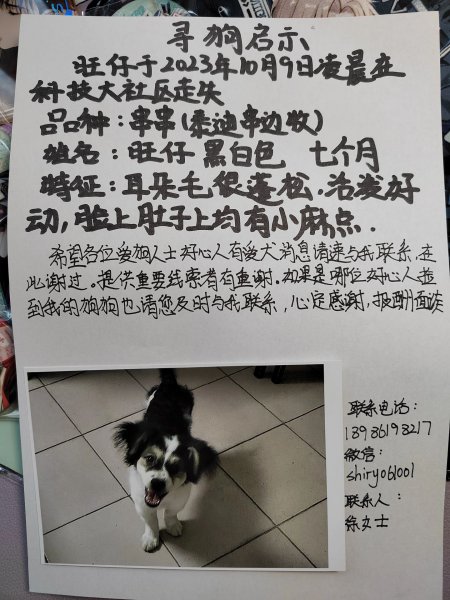 寻狗启示
旺仔于2023年10月9日凌晨在
科技大社区走失
品种：串串(泰迪串边牧)
姓名：旺仔 黑白色 七个月
特征：耳朵毛很蓬松.活泼好
动,脸上肚子上均有小麻点.
希望各位爱狗人士好心人有爱犬消息请速与我联系,在
此谢过。提供重要线索者有重谢。如果是哪位好心人捡
到我的狗狗也请您及时与我联系,心定感谢,报酬面谈
联系电话：
18986198217
微信：
shiry061001
联系人：
徐女士